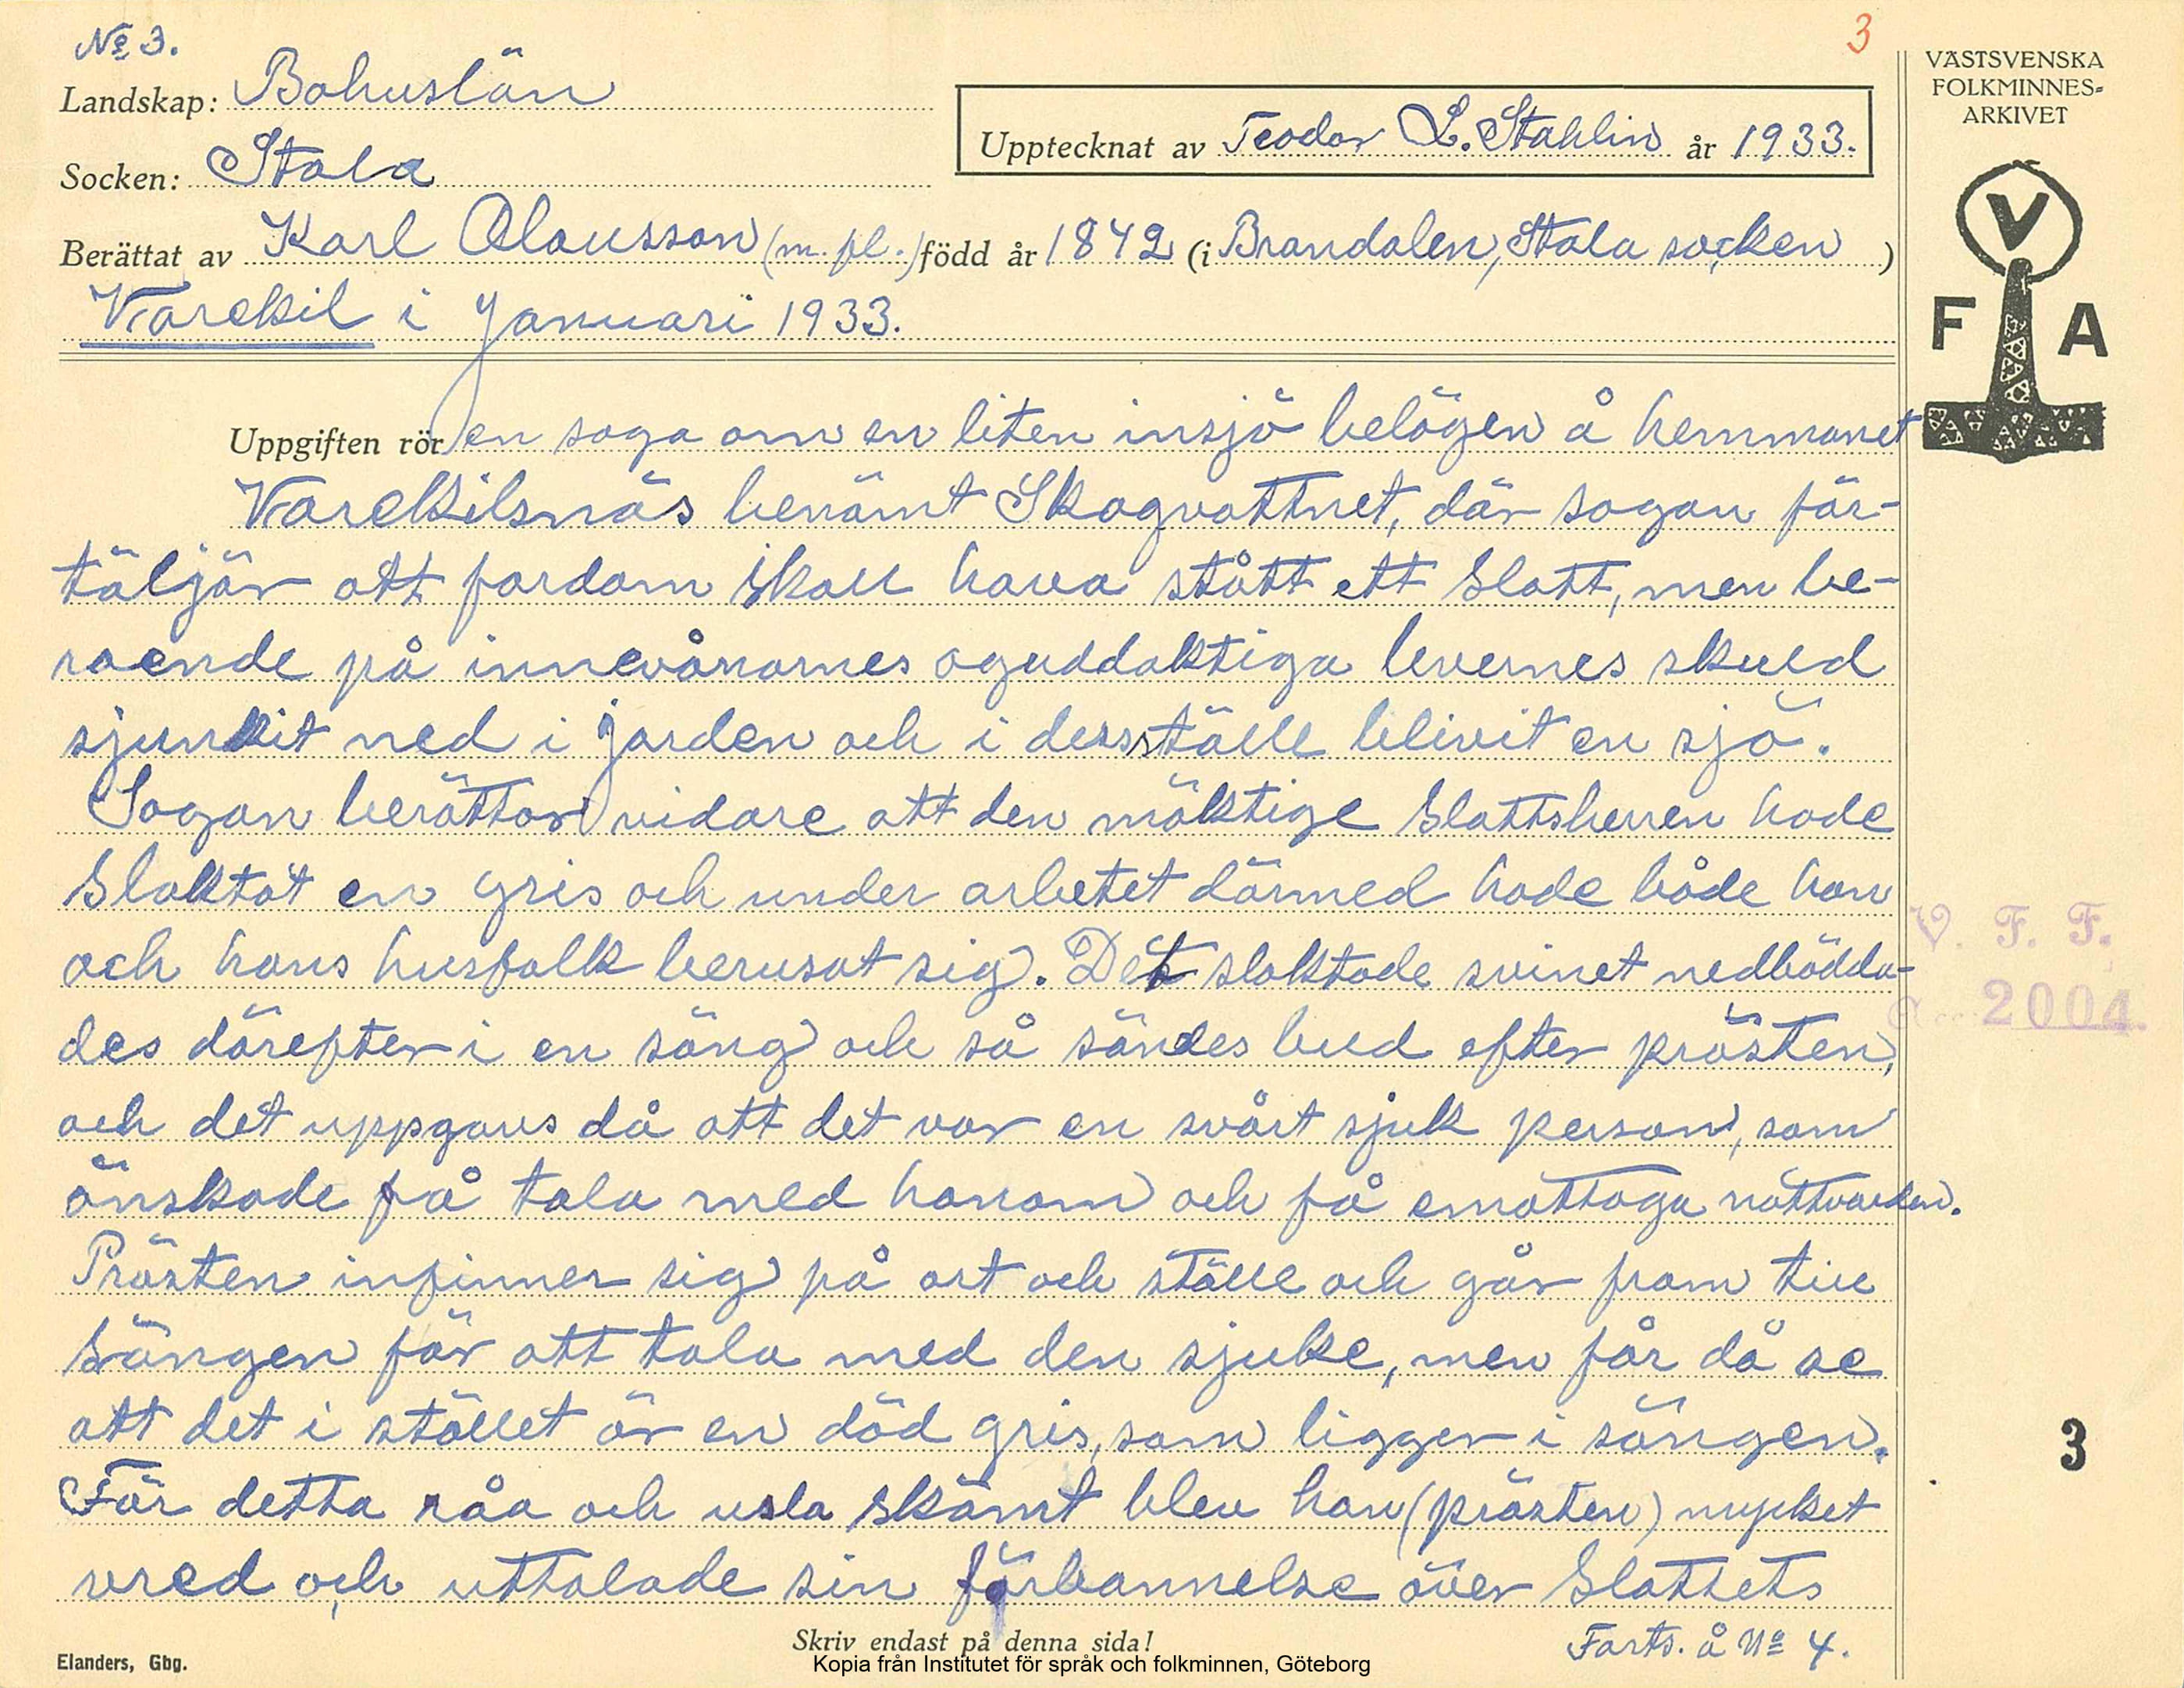 No 3.
3
Landskap: Bohuslän
Socken: Stala
Upptecknat av Teodor L. Stahlin år 1933.
Berättat av Karl Olausson (m. fl.) född år 1842 (i Brandalen, Stala socken )
Varekil i Januari 1933.
VÄSTSVENSKA
FOLKMINNES-
ARKIVET
V
F A
Uppgiften rör en saga om en liten insjö belägen å hemmanet
Varekilsnäs benämt Skogvattnet, där sagan för-
täljär att fordom skall hava stått ett slott, men be-
roende på innevånarnes oguddaktiga levernes skuld
sjunkit ned i jorden och i dess ställe blivit en sjö.
Sagan berättar vidare att den mäktige slottsherren hade
slaktat en gris och under arbetet därmed hade både han
och hans husfolk berusat sig. Det slaktade svinet nedbädda-
des därefter i en säng och så sändes bud efter prästen,
och det uppgavs då att det var en svårt sjuk person, som
önskade få tala med honom och få emottaga nattvarden.
Prästen infinner sig på ort och ställe och går fram till
sängen för att tala med den sjuke, men får då se
att det i stället är en död gris, som ligger i sängen.
För detta råa och usla skämt blev han (prästen) mycket
vred och uttalade sin förbannelse över slottets
V. F. F.
2004.
3
Forts. å No 4.
Skriv endast på denna sida!
Elanders, Gbg.
Kopia från Institutet för språk och folkminnen, Göteborg